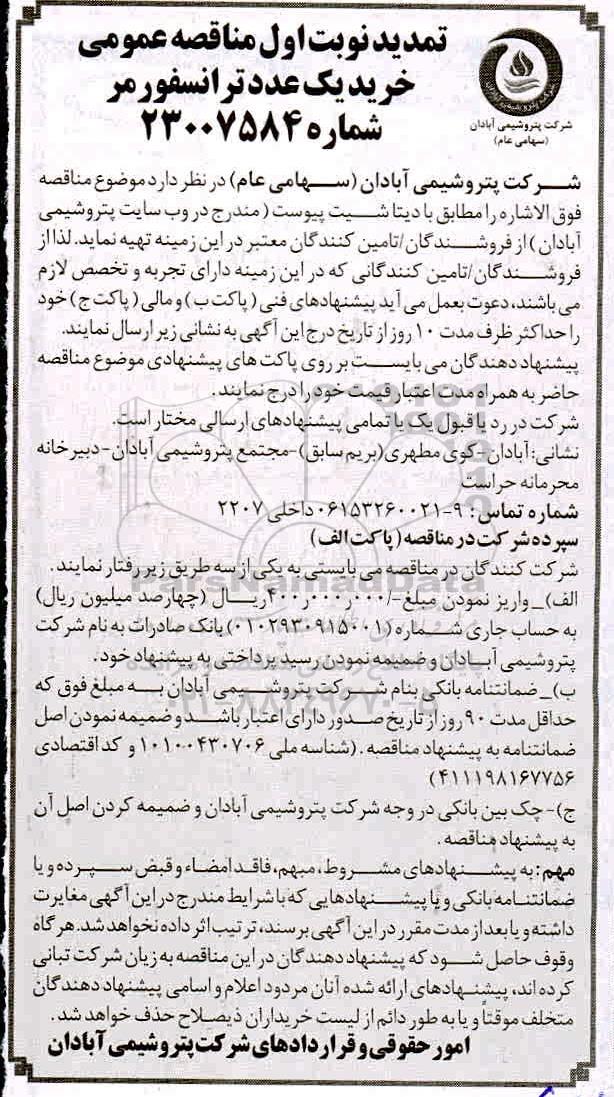 تمدید نوبت اول مناقصه عمومی
خرید یک عدد ترانسفورمر
شماره ۲۳۰۰۷۵۸۴
شرکت پتروشیمی آبادان
(سهامی عام)
شــرکت پتروشیمی آبادان (ســهامی عام) در نظر دارد موضوع مناقصه
فوق الاشاره را مطابق با دیتا شــیت پیوست (مندرج در وب سایت پتروشیمی
آبادان) از فروشــندگان/تامین کنندگان معتبر در این زمینه تهیه نماید. لذا از
فروشــندگان/تامین کنندگانی که در این زمینه دارای تجربه و تخصص لازم
می باشند، دعوت بعمل می آید پیشنهادهای فنی (پاکت ب) و مالی (پاکت ج) خود
را حداکثر ظرف مدت ۱۰ روز از تاریخ درج این آگهی به نشانی زیر ارسال نمایند.
پیشنهاد دهندگان می بایســت بر روی پاکت های پیشنهادی موضوع مناقصه
حاضر به همراه مدت اعتبار قیمت خود را درج نمایند.
شرکت در رد یا قبول یک یا تمامی پیشنهادهای ارسالی مختار است.
نشانی: آبادان-کوی مطهری (بریم سابق)-مجتمع پتروشیمی آبادان-دبیرخانه
محرمانه حراست
شماره تماس: ۹-۰۶۱۵۳۲۶۰۰۲۱ داخلی ۲۲۰۷
سپرده شرکت در مناقصه (پاکت الف)
شرکت کنندگان در مناقصه می بایستی به یکی از سه طریق زیر رفتار نمایند.
الف)_ واریز نمودن مبلغ -/۴۰۰ر۰۰۰ر۰۰۰ ریــال (چهارصد میلیون ریال)
به حساب جاری شــماره (۰۱۰۲۹۳۰۹۱۵۰۰۱) بانک صادرات به نام شرکت
پتروشیمی آبــادان و ضمیمه نمودن رسید پرداختی به پیشنهاد خود.
ب)_ ضمانتنامه بانکی بنام شــرکت پتروشــیمی آبادان بــه مبلغ فوق که
حداقل مدت ۹۰ روز از تاریخ صدور دارای اعتبار باشــد و ضمیمه نمودن اصل
ضمانتنامه به پیشنهاد مناقصه. (شناسه ملی ۱۰۱۰۰۴۳۰۷۰۶ و کد اقتصادی
۴۱۱۱۹۸۱۶۷۷۵۶)
ج)- چک بین بانکی در وجه شرکت پتروشیمی آبادان و ضمیمه کردن اصل آن
به پیشنهاد مناقصه.
مهم: به پیشــنهادهای مشــروط، مبهم، فاقد امضاء و قبض ســپرده و یا
ضمانتنامه بانکی و یا پیشــنهادهایی که با شرایط مندرج در این آگهی مغایرت
داشته و یا بعد از مدت مقرر در این آگهی برسند، ترتیب اثر داده نخواهد شد. هرگاه
وقوف حاصل شــود که پیشنهاد دهندگان در این مناقصه به زیان شرکت تبانی
کرده اند، پیشنــهادهای ارائه شده آنان مردود اعلام و اسامی پیشنهاد دهندگان
متخلف موقتاً و یا به طور دائم از لیست خریداران ذیصلاح حذف خواهد شد.
امور حقوقی و قراردادهای شرکت پتروشیمی آبادان
ParsNamadData
۰۲۱-۸۸۳۴۹۶۷۰-۵